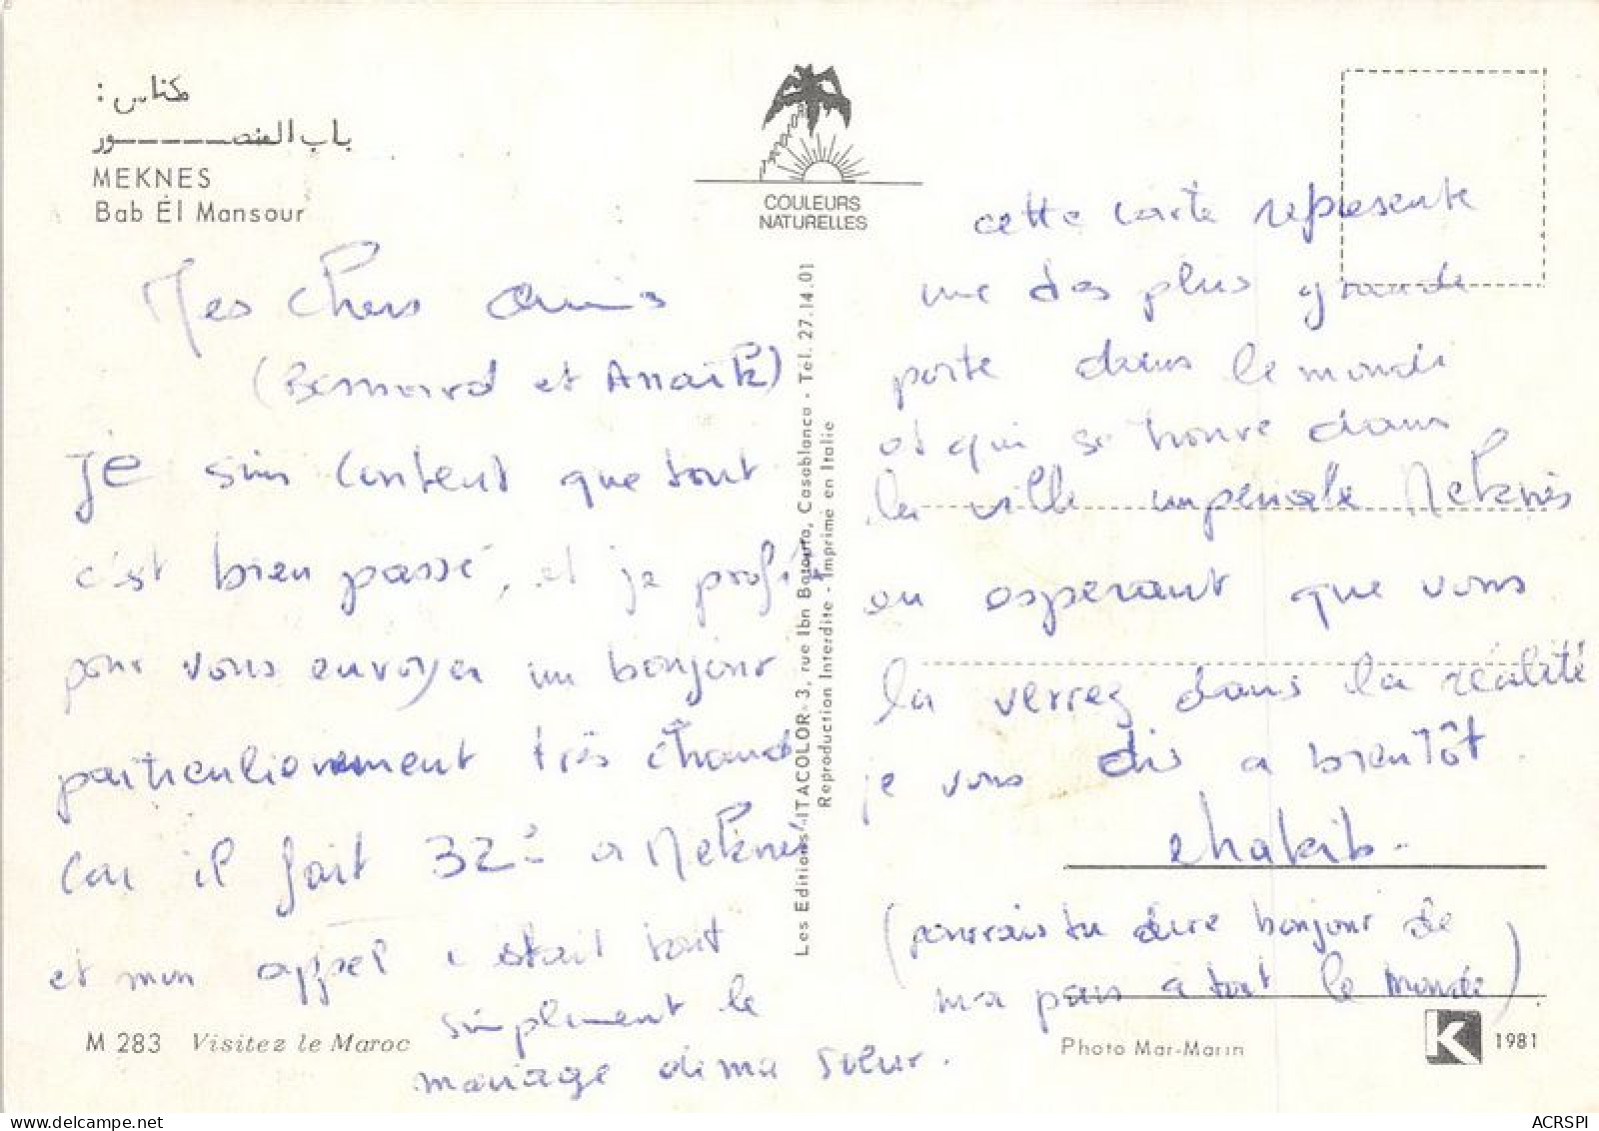 مكناس :
باب المنصور
MEKNES
Bab El Mansour
COULEURS
NATURELLES
Mes chers amis
(Bernard et Annaïk)
Je suis content que tout
c'est bien passé, et je profite
pour vous envoyer un bonjour
particulièrement très chaud
car il fait 32° a Meknès
et mon appel c'était tout
simplement le
mariage de ma sœur.
M 283 Visitez le Maroc
Les Editions "ITACOLOR" 3, rue Ibn Batouta, Casablanca - Tél. 27.14.01
Reproduction Interdite - Imprimé en Italie
cette carte represente
une des plus grande
porte dans le monde
et qui se trouve dans
la ville imperiale Meknès
en esperant que vous
la verrez dans la réalité
je vous dis a bientôt.
chakib.
(pourrais tu dire bonjour de
ma pars a tout le monde)
Photo Mar-Marin
K 1981
ACRSPI